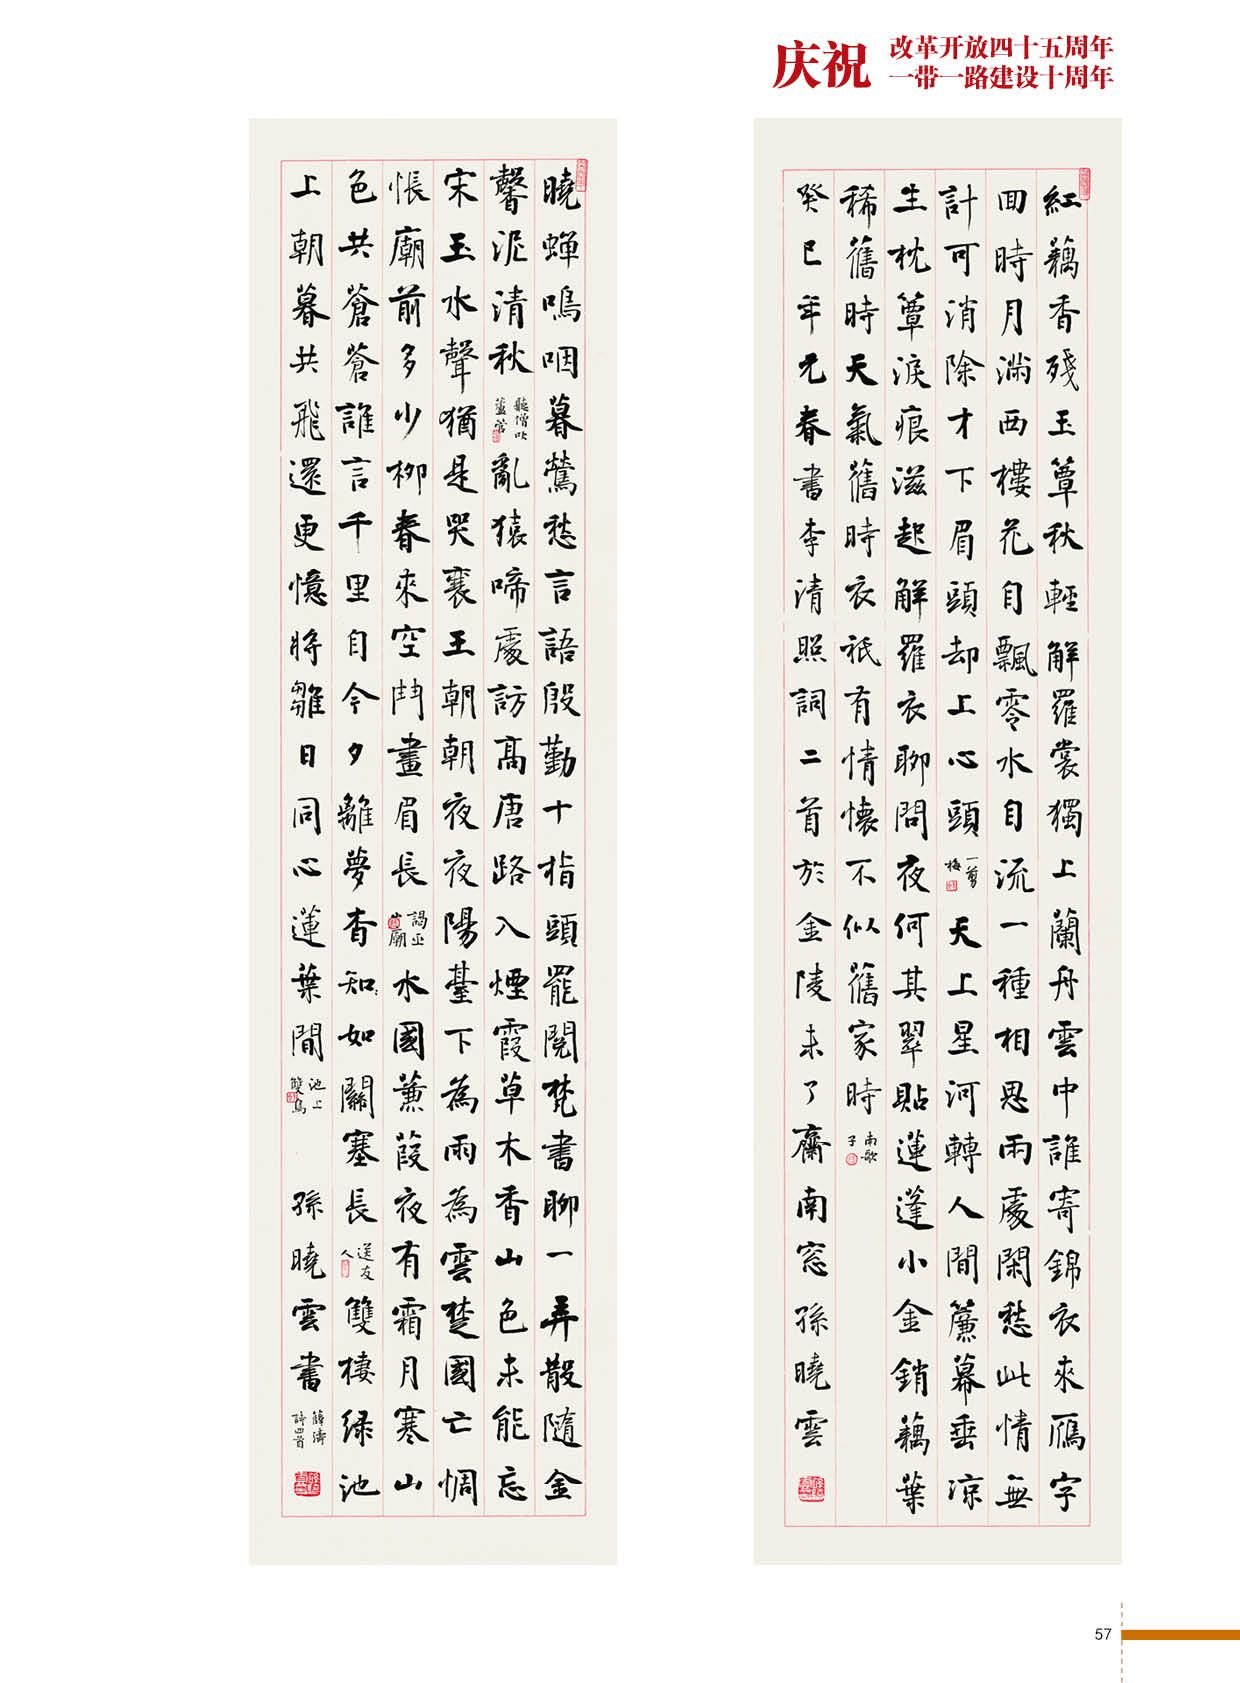 庆祝
改革开放四十五周年
一带一路建设十周年
紅藕香殘玉簟秋輕解羅裳獨上蘭舟雲中誰寄錦衣來鴈字
回時月滿西樓花自飄零水自流一種相思兩處閑愁此情無
計可消除才下眉頭却上心頭 一剪梅 天上星河轉人間簾幕垂涼
生枕簟淚痕滋起解羅衣聊問夜何其翠貼蓮蓬小金銷藕葉
稀舊時天氣舊時衣祇有情懷不似舊家時 南歌子
癸巳年元春書李清照詞二首於金陵未了齋南窓孫曉雲
曉蟬鳴咽暮鶯愁言語殷勤十指頭罷閱梵書聊一弄散隨金
磬泥清秋 聽僧吹蘆管 亂猿啼處訪高唐路入煙霞草木香山色未能忘
宋玉水聲猶是哭襄王朝朝夜夜陽臺下為雨為雲楚國亡惆
悵廟前多少柳春來空鬥畫眉長 謁巫山廟 水國蒹葭夜有霜月寒山
色共蒼蒼誰言千里自今夕離夢杳知如關塞長 送友人 雙棲綠池
上朝暮共飛還更憶將雛日同心蓮葉間 池上雙鳥 孫曉雲書 薛濤詩四首
57